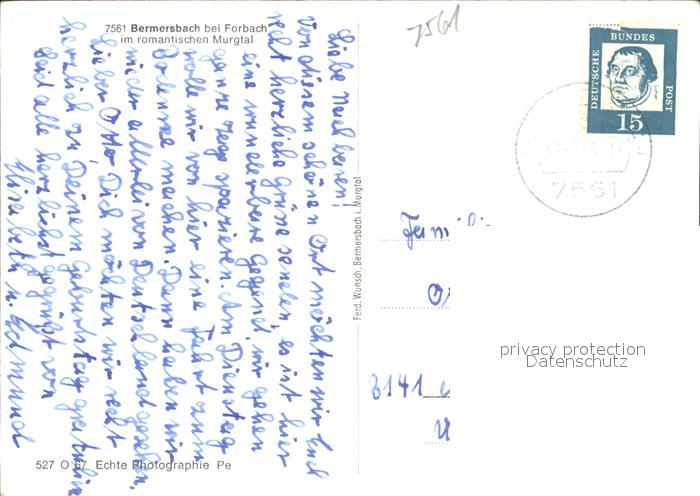 7561 Bermersbach bei Forbach
im romantischen Murgtal
7561
DEUTSCHE BUNDES POST
15
7561
Liebe
von diesem schönen Ort möchten wir Euch
recht herzliche Grüße senden, es ist hier
eine wunderbare Gegend, wir gehen
ganze Tag spazieren. Am Dienstag
wollen wir von hier eine Fahrt zum
Bodensee machen. Dann haben wir
wieder allerlei von Deutschland gesehen.
Lieber Otto Dich möchten wir recht
herzlich zu Deinem Geburtstag gratulieren
Seid alle herzlichst gegrüßt von
Elisabeth u. Edmund
Ferd. Wunsch, Bermersbach i. Murgtal
Fami
privacy protection
Datenschutz
3141
527 O 67 Echte Photographie Pe